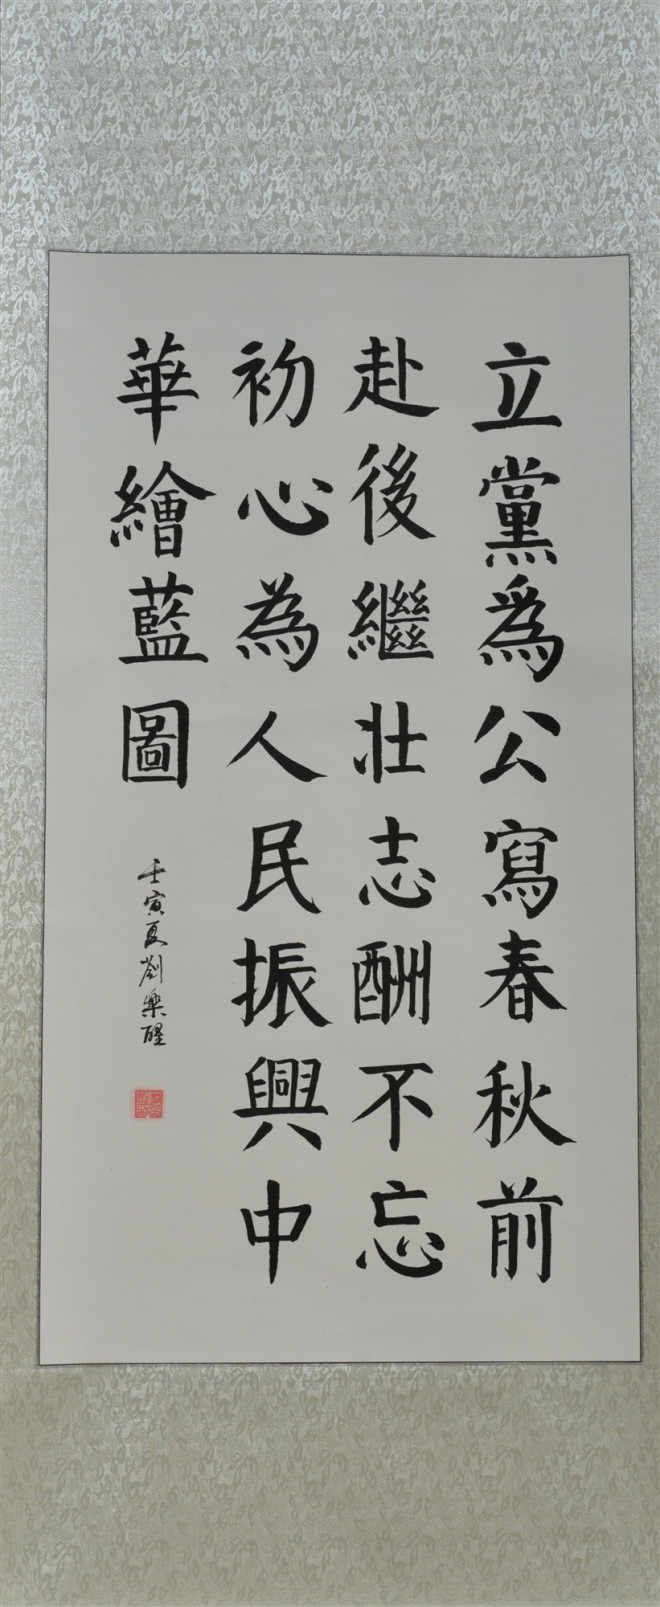 立黨爲公寫春秋前
赴後繼壯志酬不忘
初心為人民振興中
華繪藍圖
壬寅夏劉樂醒